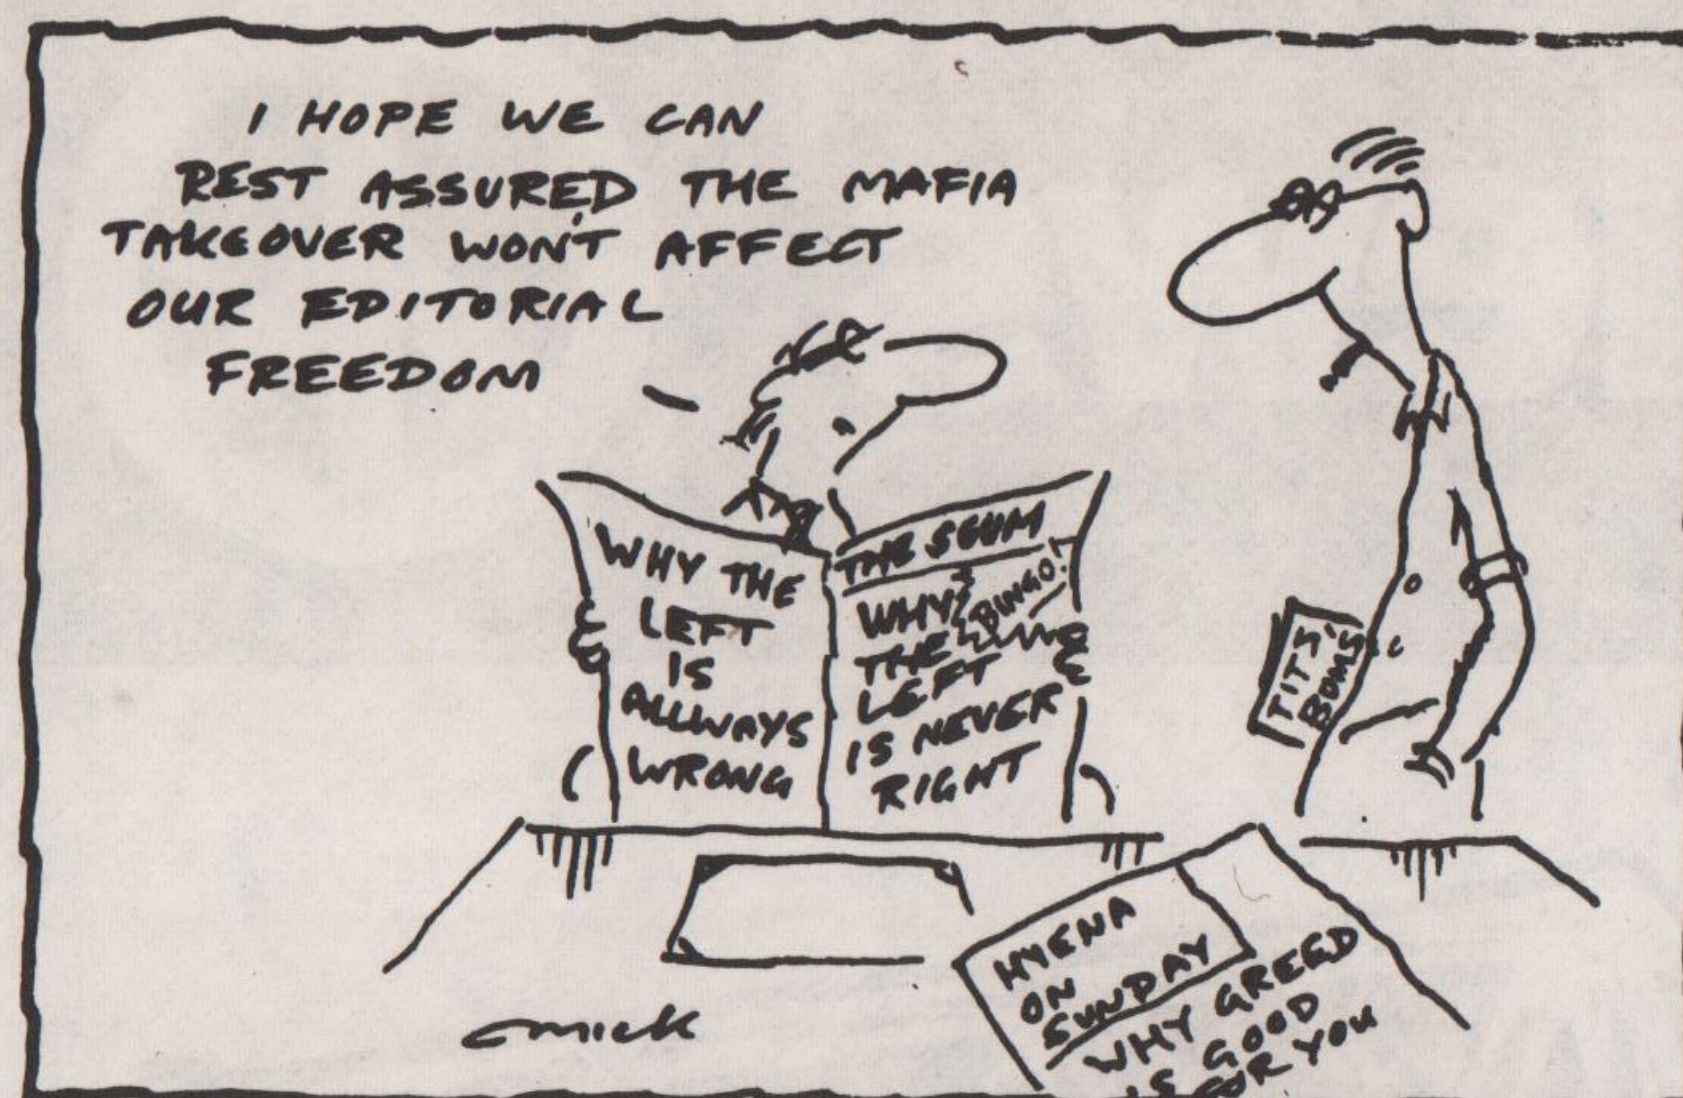 I HOPE WE CAN
REST ASSURED THE MAFIA
TAKEOVER WON'T AFFECT
OUR EDITORIAL
FREEDOM
WHY THE
LEFT
IS
ALLWAYS
WRONG
THE SCUM
BINGO!
WHY
THE
LEFT
IS NEVER
RIGHT
TITS'
BUMS'
HYENA
ON
SUNDAY
WHY GREED
IS GOOD
FOR YOU